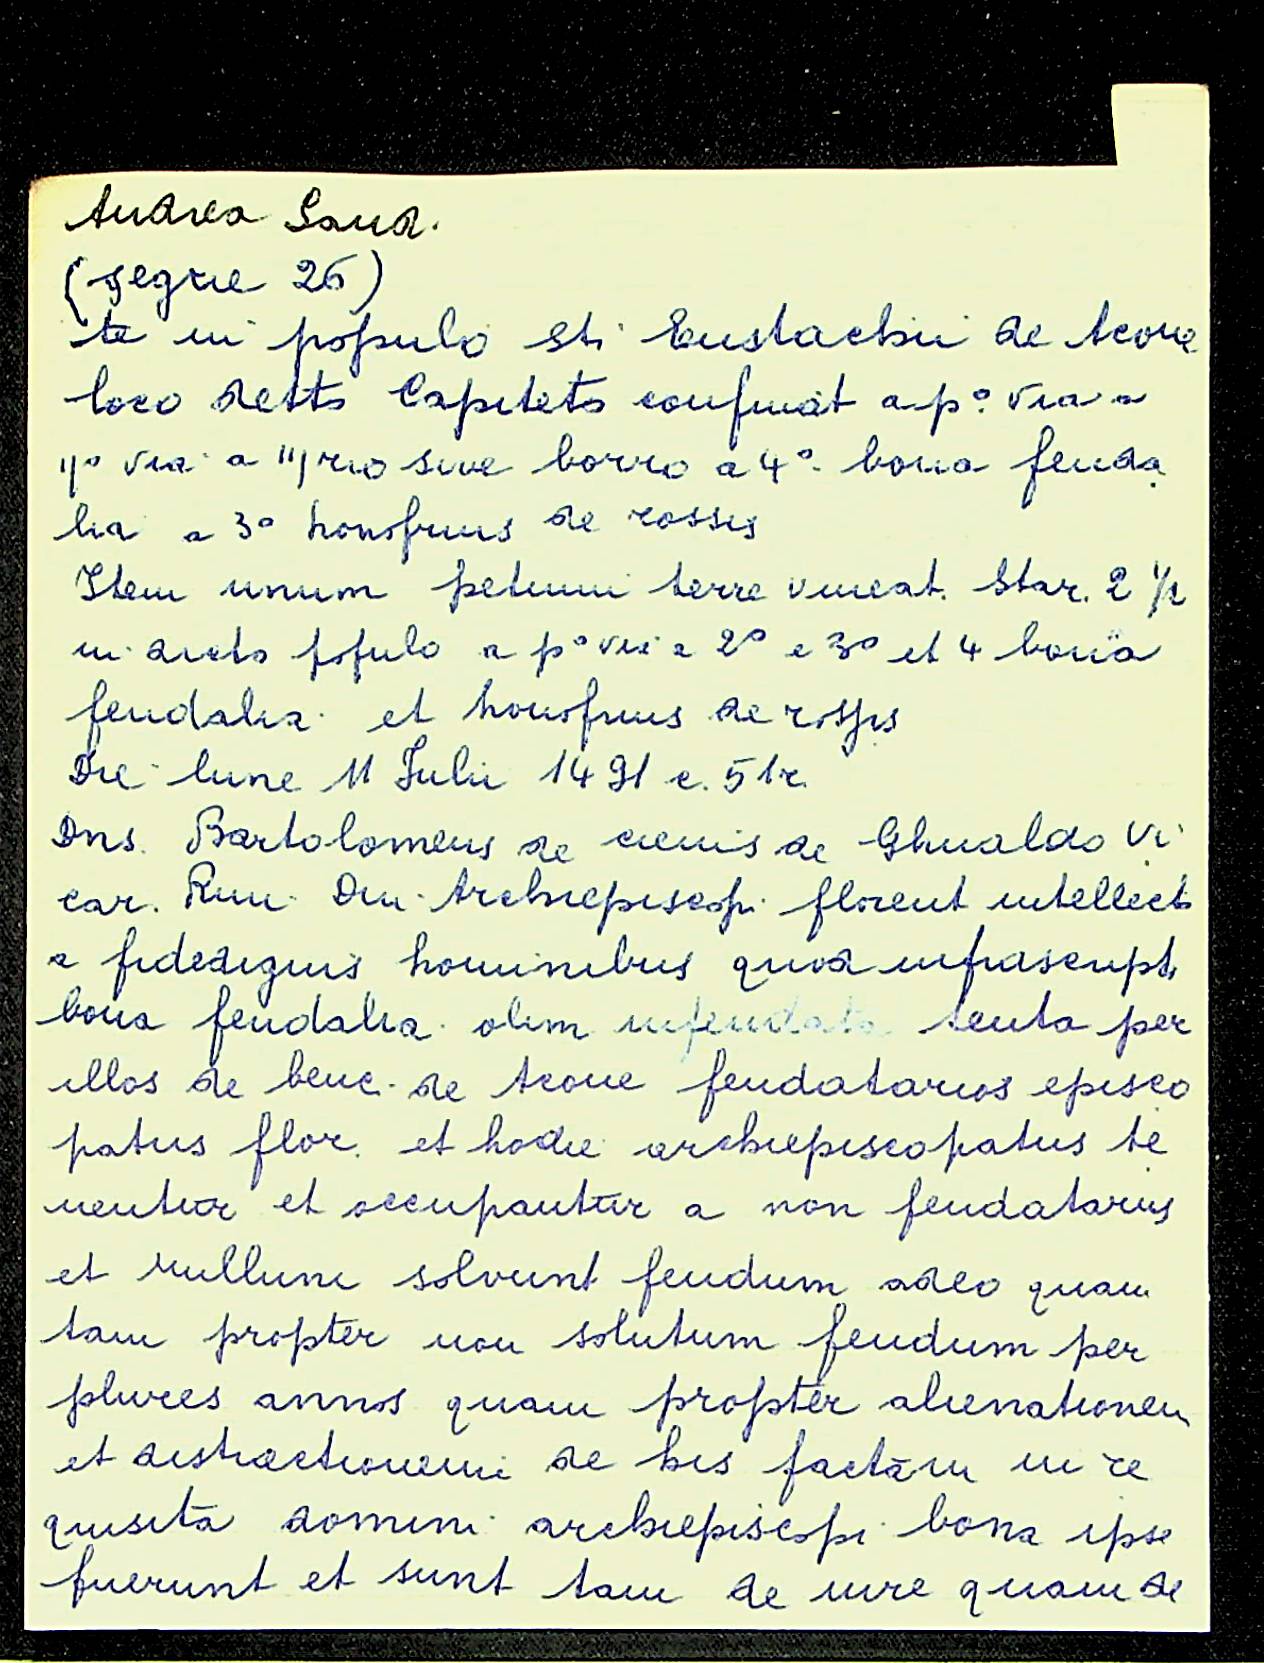 Andrea Land.
(segue 26)
te in populo Sti Eustachii de Acone
loco detto Capiteto confinat a p.o via a
IIo via a III rio sive borro a 4o bona feuda
lia a 3o honofrius de rossis
Item unum petium terre vineat. Star. 2 1/2
in dicto populo a po via a 2o e 3o et 4 bona
feudalia et honofrius de rossis
Die lune 11 Julii 1491 c. 51r.
Dns. Bartolomeus de de Ghualdo Vi
car. Rmi Dni Archiepiscopi florent intellecto
a fidedignis hominibus quod infrascript.
bona feudalia olim infeudata tenta per
illos de benc. de Acone feudatarios episco
patus flor. et hodie archiepiscopatus te
nentur et occupantur a non feudatariis
et nullum solvunt feudum adeo quam
tam propter non solutum feudum per
plures annos quam propter alienationem
et distractionem de his factam in re
quisita domini archiepiscopi bona ipse
fuerunt et sunt tam de iure quam de